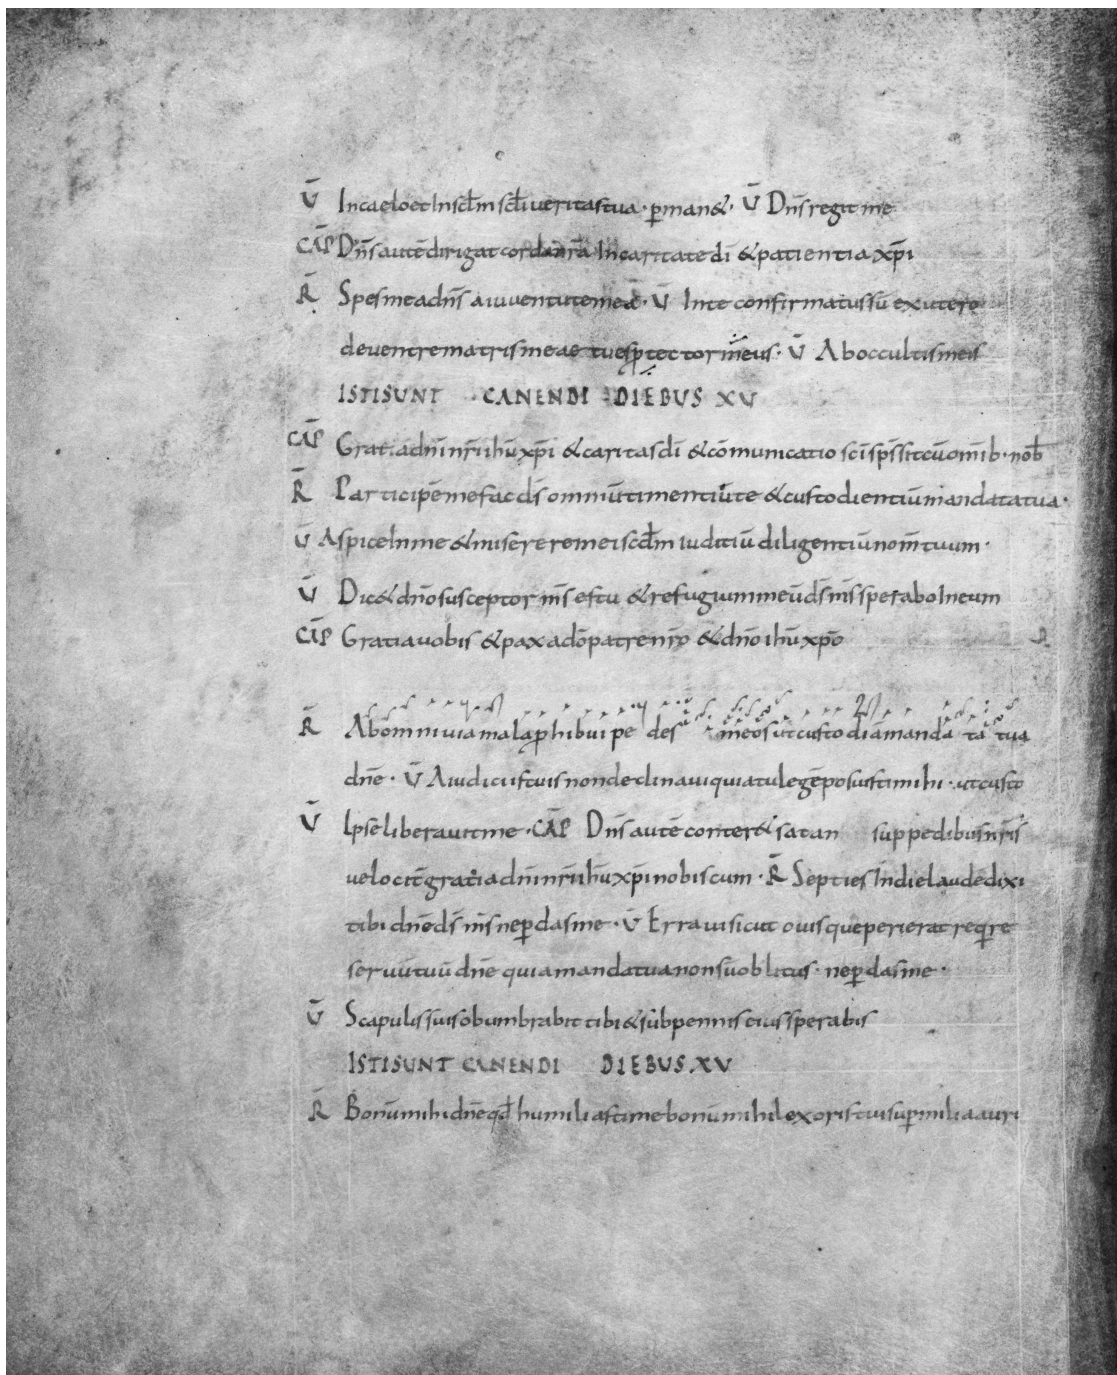 V̄ Incaeloet Insc̄lm sc̄li ueritastua · ꝑman&· V̄ Dn̄s regit me
CAP̄ Dn̄s autē dirigat corda nr̄a In caritate dī &patientia xp̄i
R̄ Spes mea dn̄s a iuuentute mea· V̄ Inte confirmatus sū ex utero
de uentre matris meae tu es ꝓtector meus· V̄ Ab occultis meis
ISTI SUNT CANENDI DIEBUS XV
CAP̄ Gratia dn̄i nr̄i ihū xp̄i & caritas dī & cōmunicatio sc̄i sp̄s sit cū omīb· nob̄
R̄ Participē me fac ds̄ omniū timentiū te & custodientiū mandata tua·
V̄ Aspice In me & miserere mei sc̄dm iuditiū diligentiū nom̄ tuum·
V̄ Dic& dn̄o susceptor m̄s es tu & refugium meū ds̄ m̄s sperabo In eum
CAP̄ Gratia uobis & pax a dō patre nr̄o & dn̄o ihū xp̄o
R̄ Ab omni uia mala ꝓhibui pedes meos ut custodiā mandata tua
dn̄e · V̄ A iudiciis tuis non declinaui quia tu legē posuisti mihi · ut custo
V̄ Ipse liberauit me · CAP̄ Dn̄s autē conter& satan sup pedibus nr̄is
uelocit̄ gratia dn̄i nr̄i ihū xp̄i nobiscum · R̄ Septies In die laudē dixi
tibi dn̄e ds̄ m̄s ne ꝑdas me · V̄ Erraui sicut ouis que perierat reqire
seruū tuū dn̄e quia mandata tua non sū oblitus · ne ꝑdas me ·
V̄ Scapulis suis obumbrabit tibi & sub pennis eius sperabis
ISTI SUNT CANENDI DIEBUS. XV
R̄ Bonū mihi dn̄e qd̄ humiliasti me bonū mihi lex oris tui sup̄ milia auri